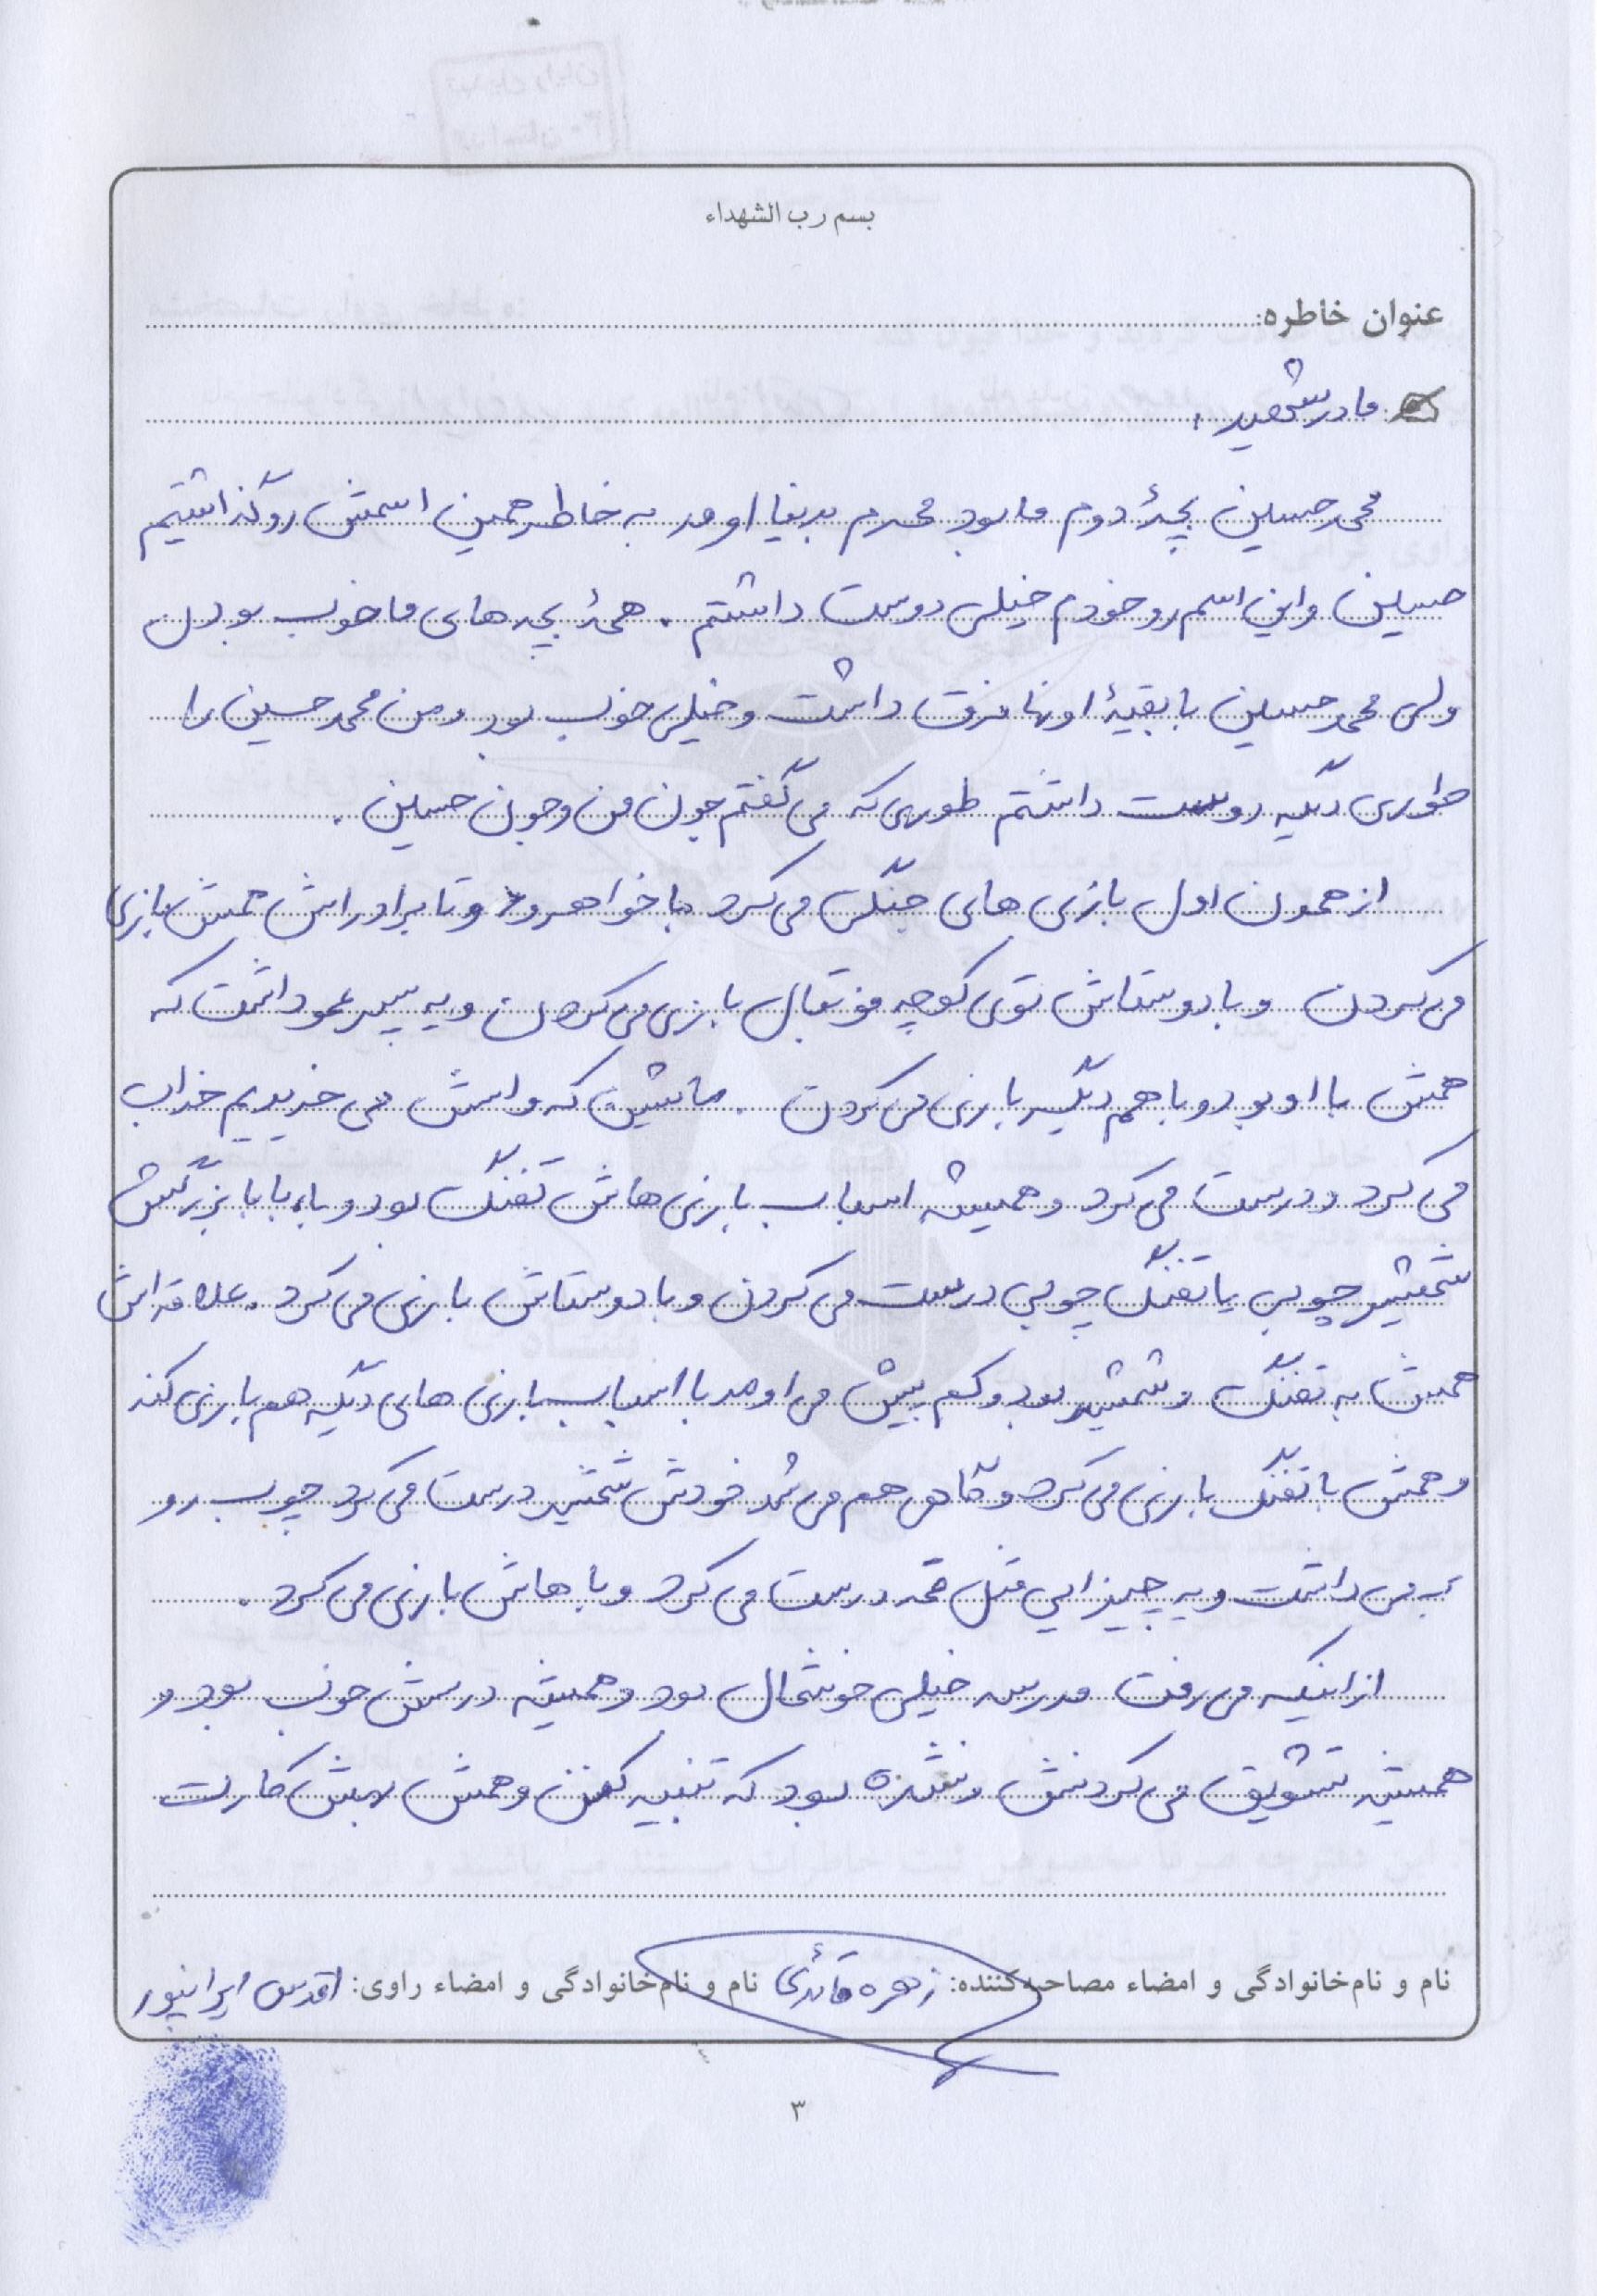 بسم رب الشهداء
عنوان خاطره:
مادر شهید :
محمد حسین بچهٔ دوم ما بود محرم بدنیا اومد به خاطر همین اسمش رو گذاشتیم
حسین و این اسم رو خودم خیلی دوست داشتم . همهٔ بچه های ما خوب بودن
ولی محمد حسین با بقیهٔ اونها فرق داشت و خیلی خوب بود و من محمد حسین را
طوری دیگه دوست داشتم طوری که می گفتم جون من و جون حسین .
از همون اول بازی های جنگی می کرد با خواهر و دو تا برادراش همش بازی
می کردن و با دوستاش توی کوچه فوتبال بازی می کردن و یه پسر عمو داشت که
همش با او بود و با هم دیگه بازی می کردن . ماشین که واسش می خریدیم خراب
می کرد و درست می کرد و همیشه اسباب بازی هاش تفنگ بود و با بابا بزرگش
شمشیر چوبی یا تفنگ چوبی درست می کردن و با دوستاش بازی می کرد . علاقه اش
همش به تفنگ و شمشیر بود و کم پیش می اومد با اسباب بازی های دیگه هم بازی کند
و همش با تفنگ بازی می کرد و گاهی هم می شد خودش شمشیر درست می کرد چوب رو
بر می داشت و یه چیزایی مثل قمه درست می کرد و باهاش بازی می کرد .
از اینکه می رفت مدرسه خیلی خوشحال بود و همیشه درسش خوب بود و
همیشه تشویق می کردنش و نشده بود که تنبیه کنن و همش بهش کارت
نام و نام‌خانوادگی و امضاء مصاحبه‌کننده: زهره قائدی نام و نام‌خانوادگی و امضاء راوی: اقدس ایرانپور
۳